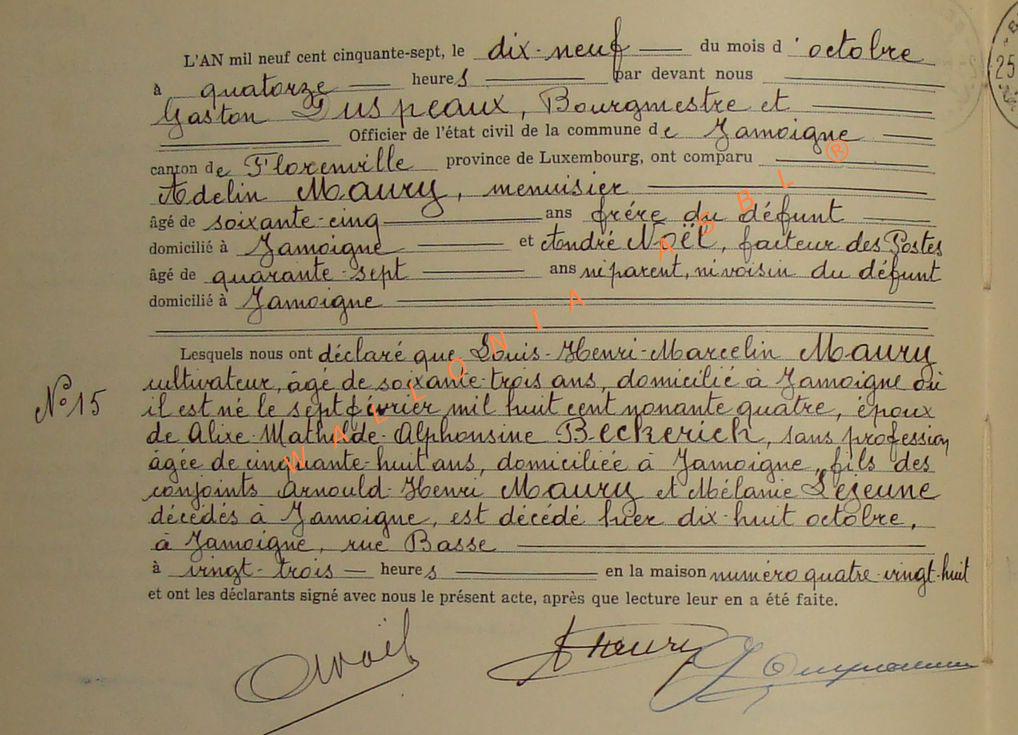 L'AN mil neuf cent cinquante-sept, le dix-neuf du mois d'octobre
à quatorze heures par devant nous
Gaston Duspeaux, Bourgmestre et
Officier de l'état civil de la commune de Jamoigne
canton de Florenville province de Luxembourg, ont comparu
Adelin Maury, menuisier
âgé de soixante-cinq ans frére du défunt
domicilié à Jamoigne et André Noël, facteur des Postes
âgé de quarante-sept ans ni parent, ni voisin du défunt
domicilié à Jamoigne
Lesquels nous ont déclaré que Louis-Henri-Marcelin Maury
N° 15
cultivateur, âgé de soixante-trois ans, domicilié à Jamoigne où
il est né le sept février mil huit cent nonante quatre, époux
de Alixe-Mathilde-Alphonsine Beckerich, sans profession,
âgée de cinquante-huit ans, domiciliée à Jamoigne, fils des
conjoints Arnould-Henri Maury et Mélanie Lejeune
décédés à Jamoigne, est décédé hier dix-huit octobre,
à Jamoigne, rue Basse
à vingt-trois heures en la maison numéro quatre-vingt-huit
et ont les déclarants signé avec nous le présent acte, après que lecture leur en a été faite.
WALLONIA ASBL ®
25